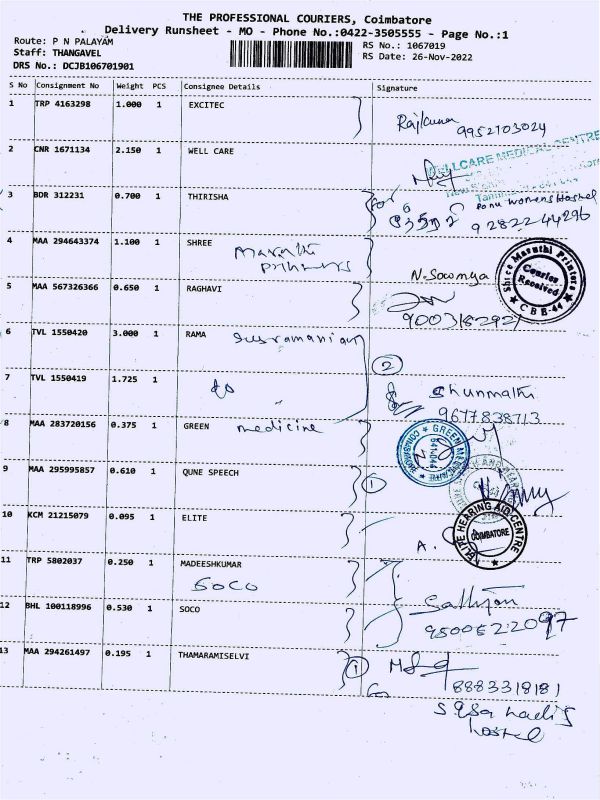 THE PROFESSIONAL COURIERS, Coimbatore
Delivery Runsheet - MO - Phone No.:0422-3505555 - Page No.:1
Route: P N PALAYAM
Staff: THANGAVEL
DRS No.: DCJB106701901
RS No.: 1067019
RS Date: 26-Nov-2022
S No Consignment No Weight PCS Consignee Details Signature
1 TRP 4163298 1.000 1 EXCITEC
9952103024
2 CNR 1671134 2.150 1 WELL CARE
WELLCARE MEDICAL CENTRE
3 BDR 312231 0.700 1 THIRISHA
for Ponu womens Hostel
9282244296
4 MAA 294643374 1.100 1 SHREE Marathi
N. Sowmya
Shree Maruthi Printers
Courier Received
CBB-44
5 MAA 567326366 0.650 1 RAGHAVI
6 TVL 1550420 3.000 1 RAMA
2
7 TVL 1550419 1.725 1 do
Shunmathi
9677838713
8 MAA 283720156 0.375 1 GREEN medicine
GREEN MEDICINE
COIMBATORE
9 MAA 295995857 0.610 1 QUNE SPEECH
1
10 KCM 21215079 0.095 1 ELITE
A.
ELITE HEARING AID CENTRE
COIMBATORE
11 TRP 5802037 0.250 1 MADEESHKUMAR
SOCO
12 BHL 100118996 0.530 1 SOCO
9500522097
13 MAA 294261497 0.195 1 THAMARAMISELVI
1
for 8883318181
ladis
hostel